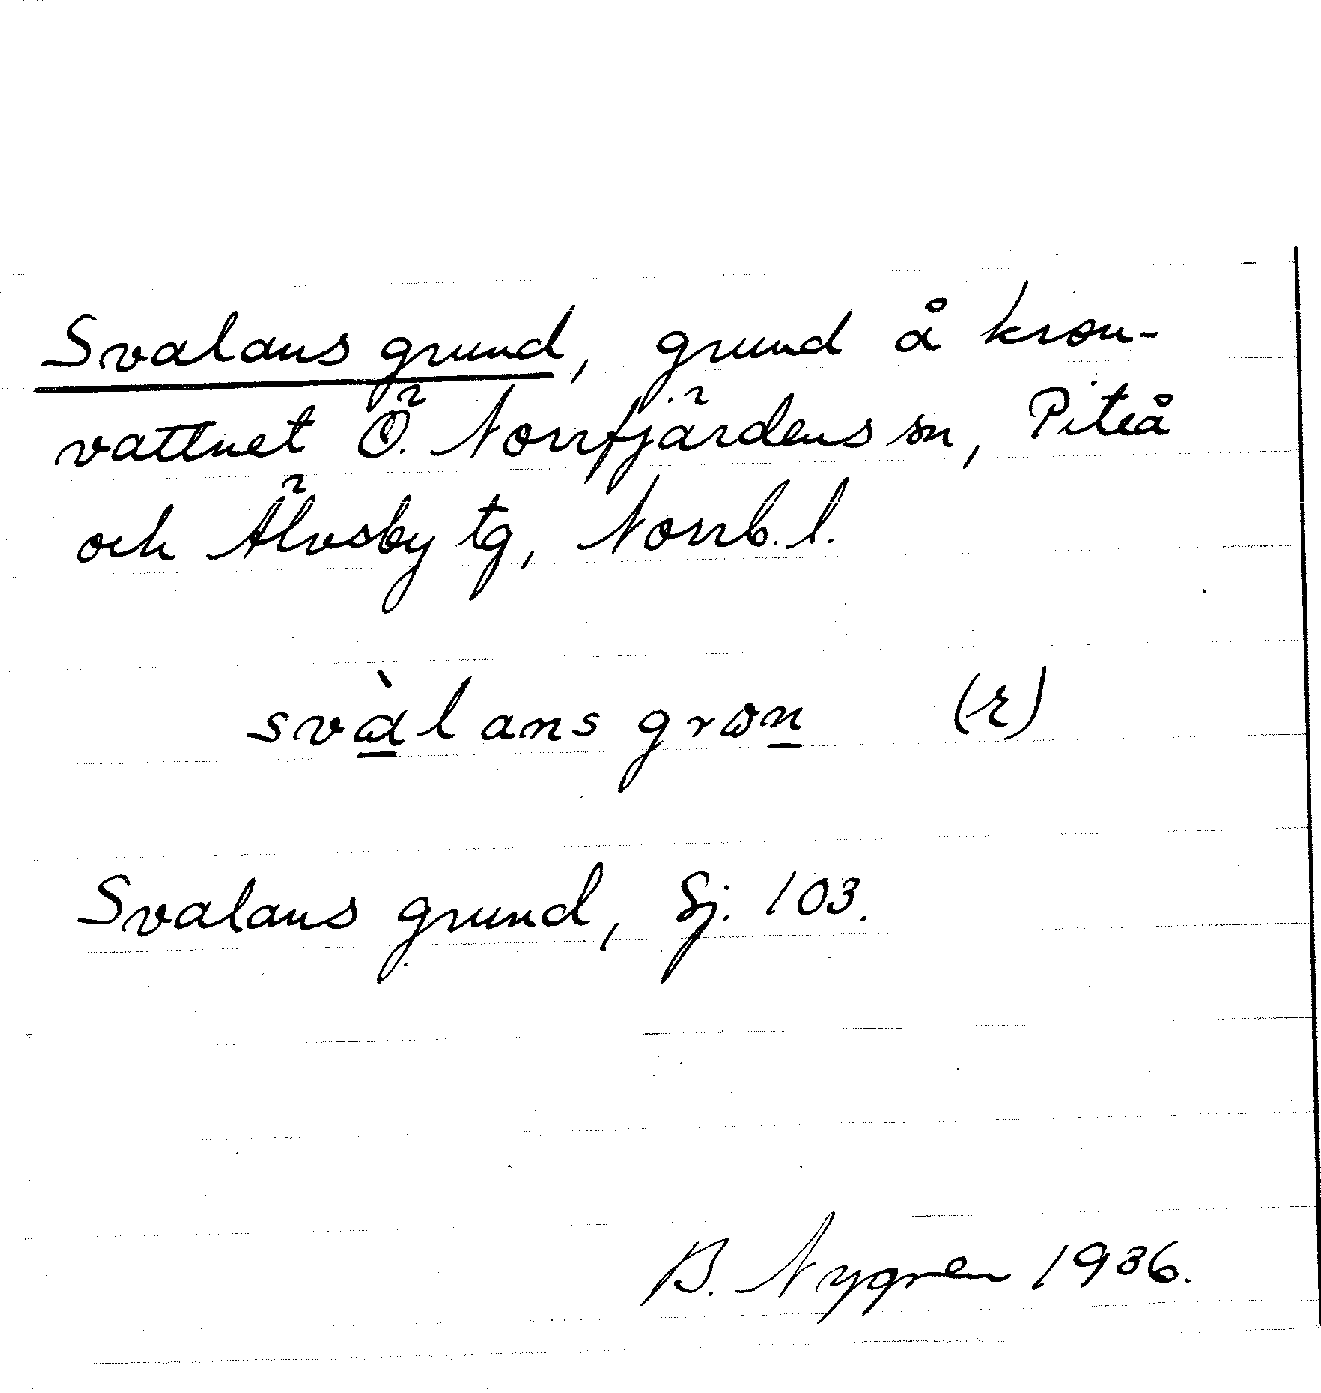 Svalans grund, grund å kron-
vattnet Ö. Norrfjärdens sn, Piteå
och Älvsby tg, Norrb. l.
svàlans grωn (r)
Svalans grund, Sj. 103.
B. Nygren 1936.